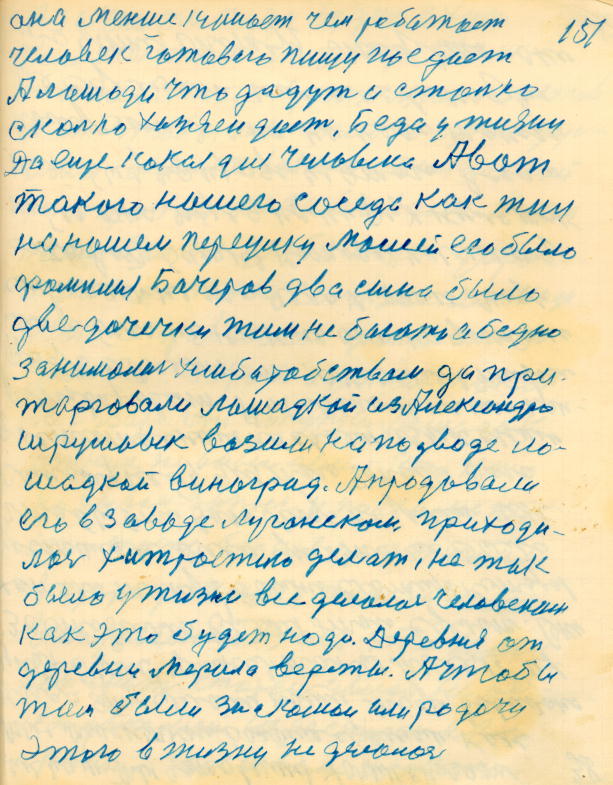 151
она менше кушает чем работает
человек готовою пищу поедает
А лошади что дадут и столко
сколко хозяен дает, Беда у жизни
Да еще какая для человека А вот
такого нашего соседа как жил
на нашем переулку Мосей его было
фамилия Бочеров два сына было
две дочечки жили не богато а бедно
занималися хлибаробством да при-
торговали лошадкой из Александро
шрушовык возили на подводе ло-
шадкой виноград. А продовали
его в заводе Луганском, приходи-
лося хитростию делат, не так
было у жизни все делалося человеком
как это будет надо. Деревня от
деревни мерила версты. А чтобы
там были знакомои или родочи
этого в жизни не делалося